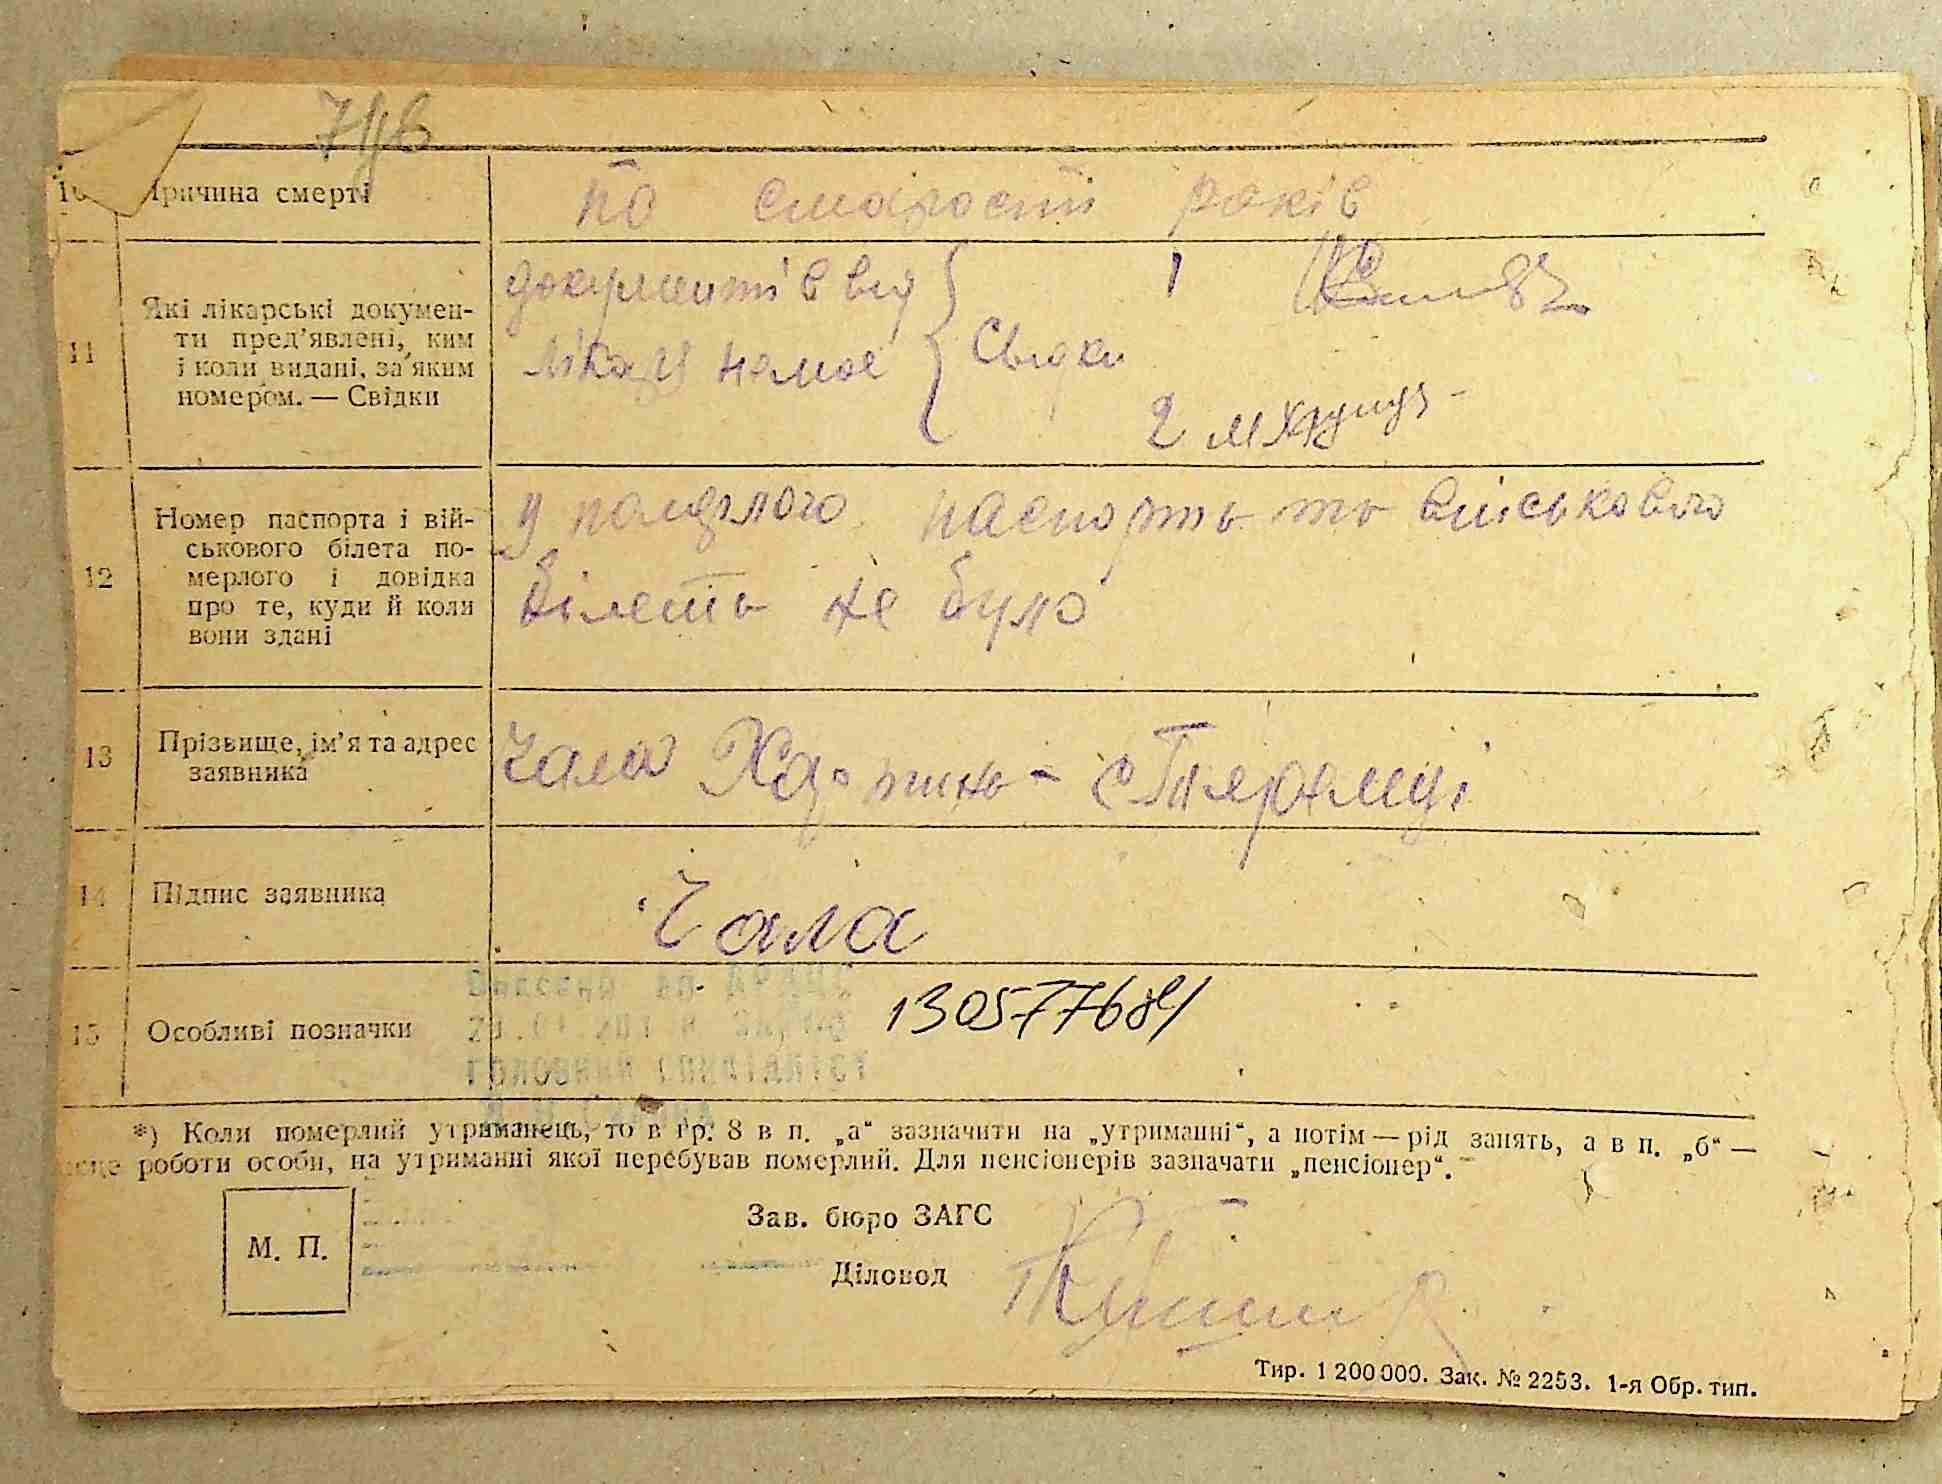 10 Причина смерті по старості років
11 Які лікарські докумен-
ти пред'явлені, ким
і коли видані, за яким
номером. — Свідки
документів від
лікаря немає
Свідки
1
2
12 Номер паспорта і вій-
ськового білета по-
мерлого і довідка
про те, куди й коли
вони здані
у памерлого паспорта та військового
білета не було
13 Прізвище, ім'я та адрес
заявника
Чала с.
14 Підпис заявника Чала
15 Особливі позначки
головний спеціаліст
*) Коли померлий утриманець, то в гр. 8 в п. „а“ зазначити на „утриманні“, а потім — рід занять, а в п. „б“ —
роботи особи, на утриманні якої перебував померлий. Для пенсіонерів зазначати „пенсіонер“.
М. П.
Зав. бюро ЗАГС
Діловод
Тир. 1 200 000. Зак. № 2253. 1-я Обр. тип.